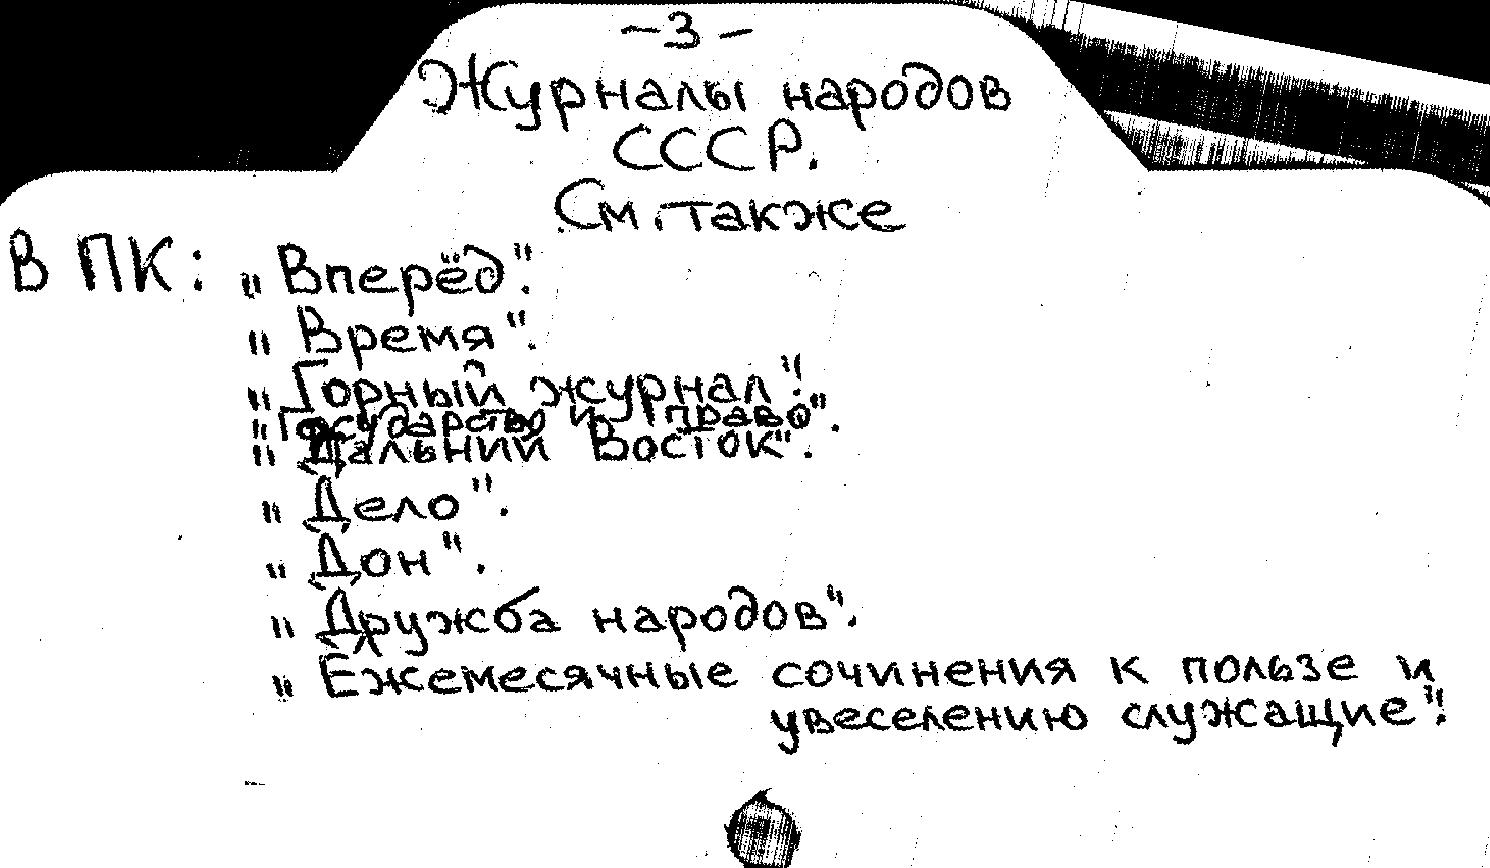 -3-
Журналы народов
СССР.
См. также
В ПК: "Вперёд".
"Время".
"Горный журнал".
"Государство и право".
"Дальний Восток".
"Дело".
"Дон".
"Дружба народов".
"Ежемесячные сочинения к пользе и
увеселению служащие".